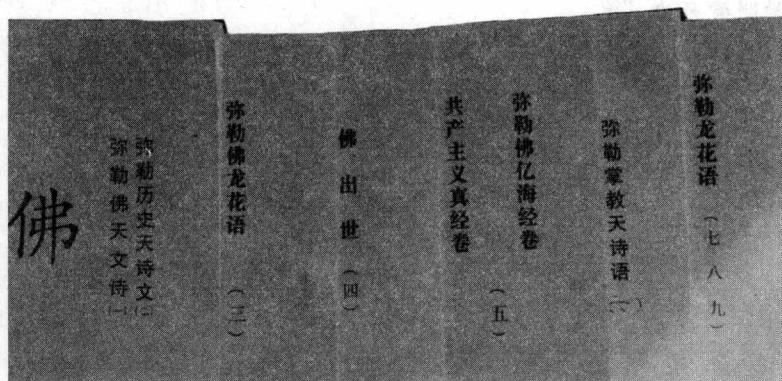 佛
弥勒佛天文诗(一)
弥勒历史天诗文(二)
弥勒佛龙花语(三)
佛出世(四)
共产主义真经卷
弥勒佛亿海经卷
(五)
弥勒掌教天诗语
弥勒龙花语(七八九)